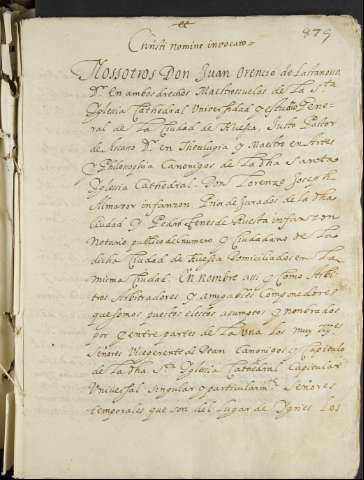 879
Christi nomine invocato=
Nossotros Don Juan Orencio de Lastanossa
Dr. En ambos drechos Maestrescuelas de La Sta
Yglesia Cathedral Universidad y estudio Gene-
ral de La Ciudad de Huesca, Justo Pastor
de Dr. en Theulugia y Maestro en Artes
y Philosophia Canonigos de La dha Sancta
Yglesia Cathedral. Don Lorenzo Joseph
Almazor infanzon Prior de Jurados de La dha
Ciudad y Pedro de Huesca infanzon
Notario publico del numero y Ciudadano de La
dicha Ciudad de Huesca Domiciliados en La
misma Ciudad. En nombre assi y Como Arbi-
tros Arbitradores y amigables Componedores
que somos puestos electos asumptos y nonbrados
por y entre partes de La Una los muy Illes
Señores Vicepresidente Dean Canonigos y Capitulo
de La dha Sta Yglesia Cathedral Capitular
Universal singular y particularmte. Señores
temporales que son del Lugar de Ygries Los